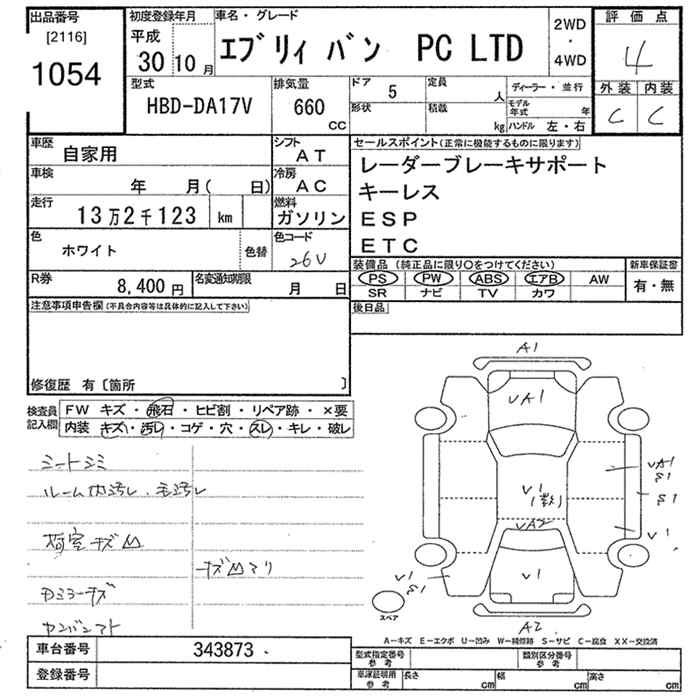 出品番号 初度登録年月 車名・グレード 2WD・4WD 評価点
[2116] 平成
1054 30年10月 エブリィ バン PC LTD 4
型式 排気量 ドア 定員 ディーラー・並行 外装 内装
HBD-DA17V 660CC 5 人 モデル年式 年 C C
形状 積載 kg ハンドル 左・右
車歴 自家用 シフト AT セールスポイント(正常に機能するものに限ります)
車検 年 月( 日) 冷房 AC レーダーブレーキサポート
走行 13万2千123 km 燃料 ガソリン キーレス
ESP
色 ホワイト 色替 色コード 26U ETC
R券 8,400円 名変通知期限 月 日 装備品(純正品に限り○をつけてください) 新車保証書
PS PW ABS エアB AW 有・無
SR ナビ TV カワ
注意事項申告欄(不具合内容等は具体的に記入して下さい) 後日品
修復歴 有〔箇所 〕
検査員記入欄 FW キズ・飛石・ヒビ割・リペア跡・×要
内装 キズ・汚レ・コゲ・穴・スレ・キレ・破レ
シートシミ
ルーム内汚レ・毛汚レ
荷室キズ凹
キズ凹アリ
A1
VA1
VA1
S1
S1
V1
V1
VA2
V1
V1
S1
A2
スペア
A-キズ E-エクボ U-凹み W-補修跡 S-サビ C-腐食 XX-交換済
車台番号 343873 型式指定番号 参考 類別区分番号 参考
登録番号 車庫証明用 参考 長さ cm 幅 cm 高さ cm